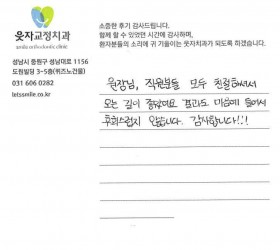 웃자교정치과
smile orthodontic clinic
성남시 중원구 성남대로 1156
도림빌딩 3~5층(위즈노건물)
031 606 0282
letssmile.co.kr
소중한 후기 감사드립니다.
함께 할 수 있었던 시간에 감사하며,
환자분들의 소리에 귀 기울이는 웃자치과가 되도록 하겠습니다.
원장님, 직원분들 모두 친절하셔서
오는 길이 즐거웠고 결과도 마음에 들어서
후회스럽지 않습니다. 감사합니다!!!